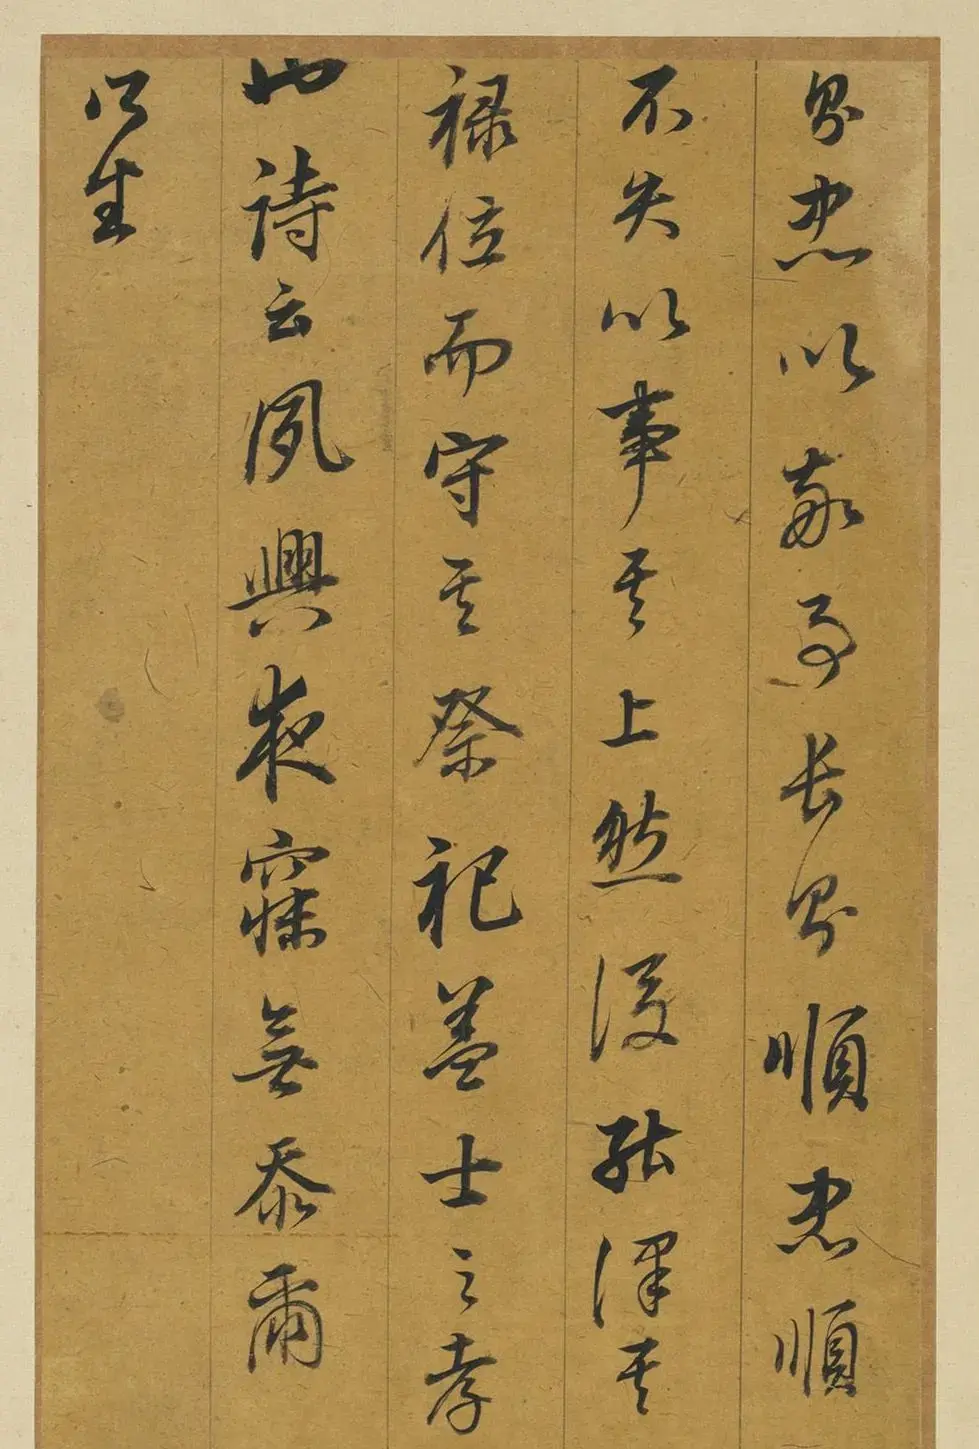 則忠以敬事長則順忠順
不失以事其上然後能保其
禄位而守其祭祀蓋士之孝
也詩云夙興夜寐無忝爾
所生